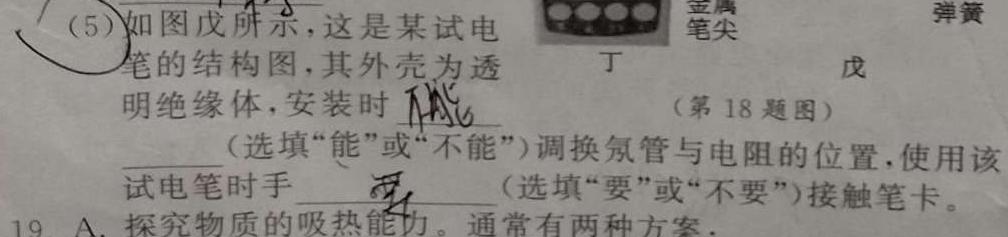 金属
笔尖
弹簧
丁
戊
(第 18 题图)
(5)如图戊所示,这是某试电
笔的结构图,其外壳为透
明绝缘体,安装时 不能
(选填“能”或“不能”)调换氖管与电阻的位置,使用该
试电笔时手 要 (选填“要”或“不要”)接触笔卡。
19 A. 探究物质的吸热能力。通常有两种方案: